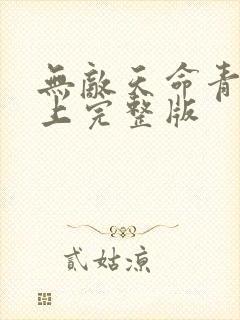 無敵天命青
上完整版
貳姑凉